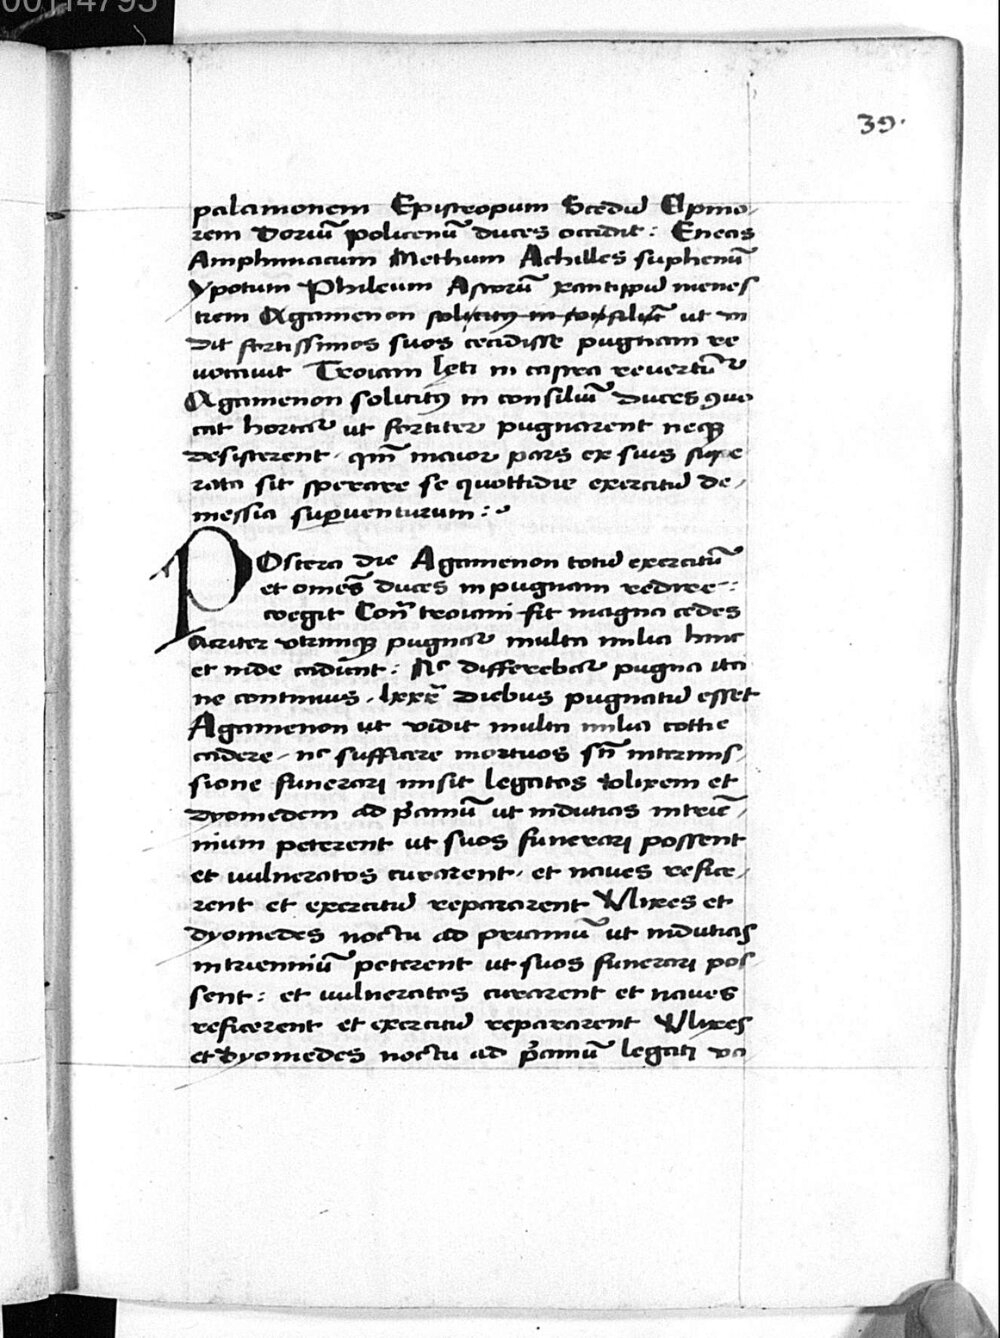 00114795
39.
palamonem Epistropum Scediũ Elpino,
rem Doriũ policenũ duces occidit : Eneas
Amphimacum Methum Achilles suphenũ
ypotum Phileum Asteriũ xantippũ menes
tiem Agamenon solicitꝰ in consiliũ ut vi
dit fortissimos suos cecidisse pugnam re
uocauit Troiani leti in castra revertũᵗ
Agamenon solicitꝰ in consiliũ duces ꝯuo
cat hortaᵗ ut fortiter pugnarent neqꝫ
desisterent . qm̃ maior pars ex suis supe
rata sit sperare se quottidie exercitũ de,
messia suꝑventurum :
POstera die Agamenon totũ exercitũ
et omẽs duces in pugnam redire :
coegit Con̄ troiani fit magna cedes
acriter vtrimqꝫ pugnaᵗ multa milia hinc
et inde cadunt : Nᶜ differebaᵗ pugna ita
ne continuis . lxxx̃ diebus pugnatũ esset
Agamenon ut vidit multa milia cottie
cadere . nᶜ sufficere mortuos sñ intermis,
sione funerari misit legatos Volixem et
dyomedem ad p̃amũ ut indutias in triẽ,
nium peterent ut suos funerari possent
et uulneratos curarent . et naues refice,
rent et exercitũ repararent Vlixes et
dyomedes noctu ad priamũ ut indutias
in trienniũ peterent ut suos funerari pos
sent : et uulneratos curarent et naues
reficerent et exercitũ repararent Vlixes
et dyomedes noctu ad p̃amũ legati va